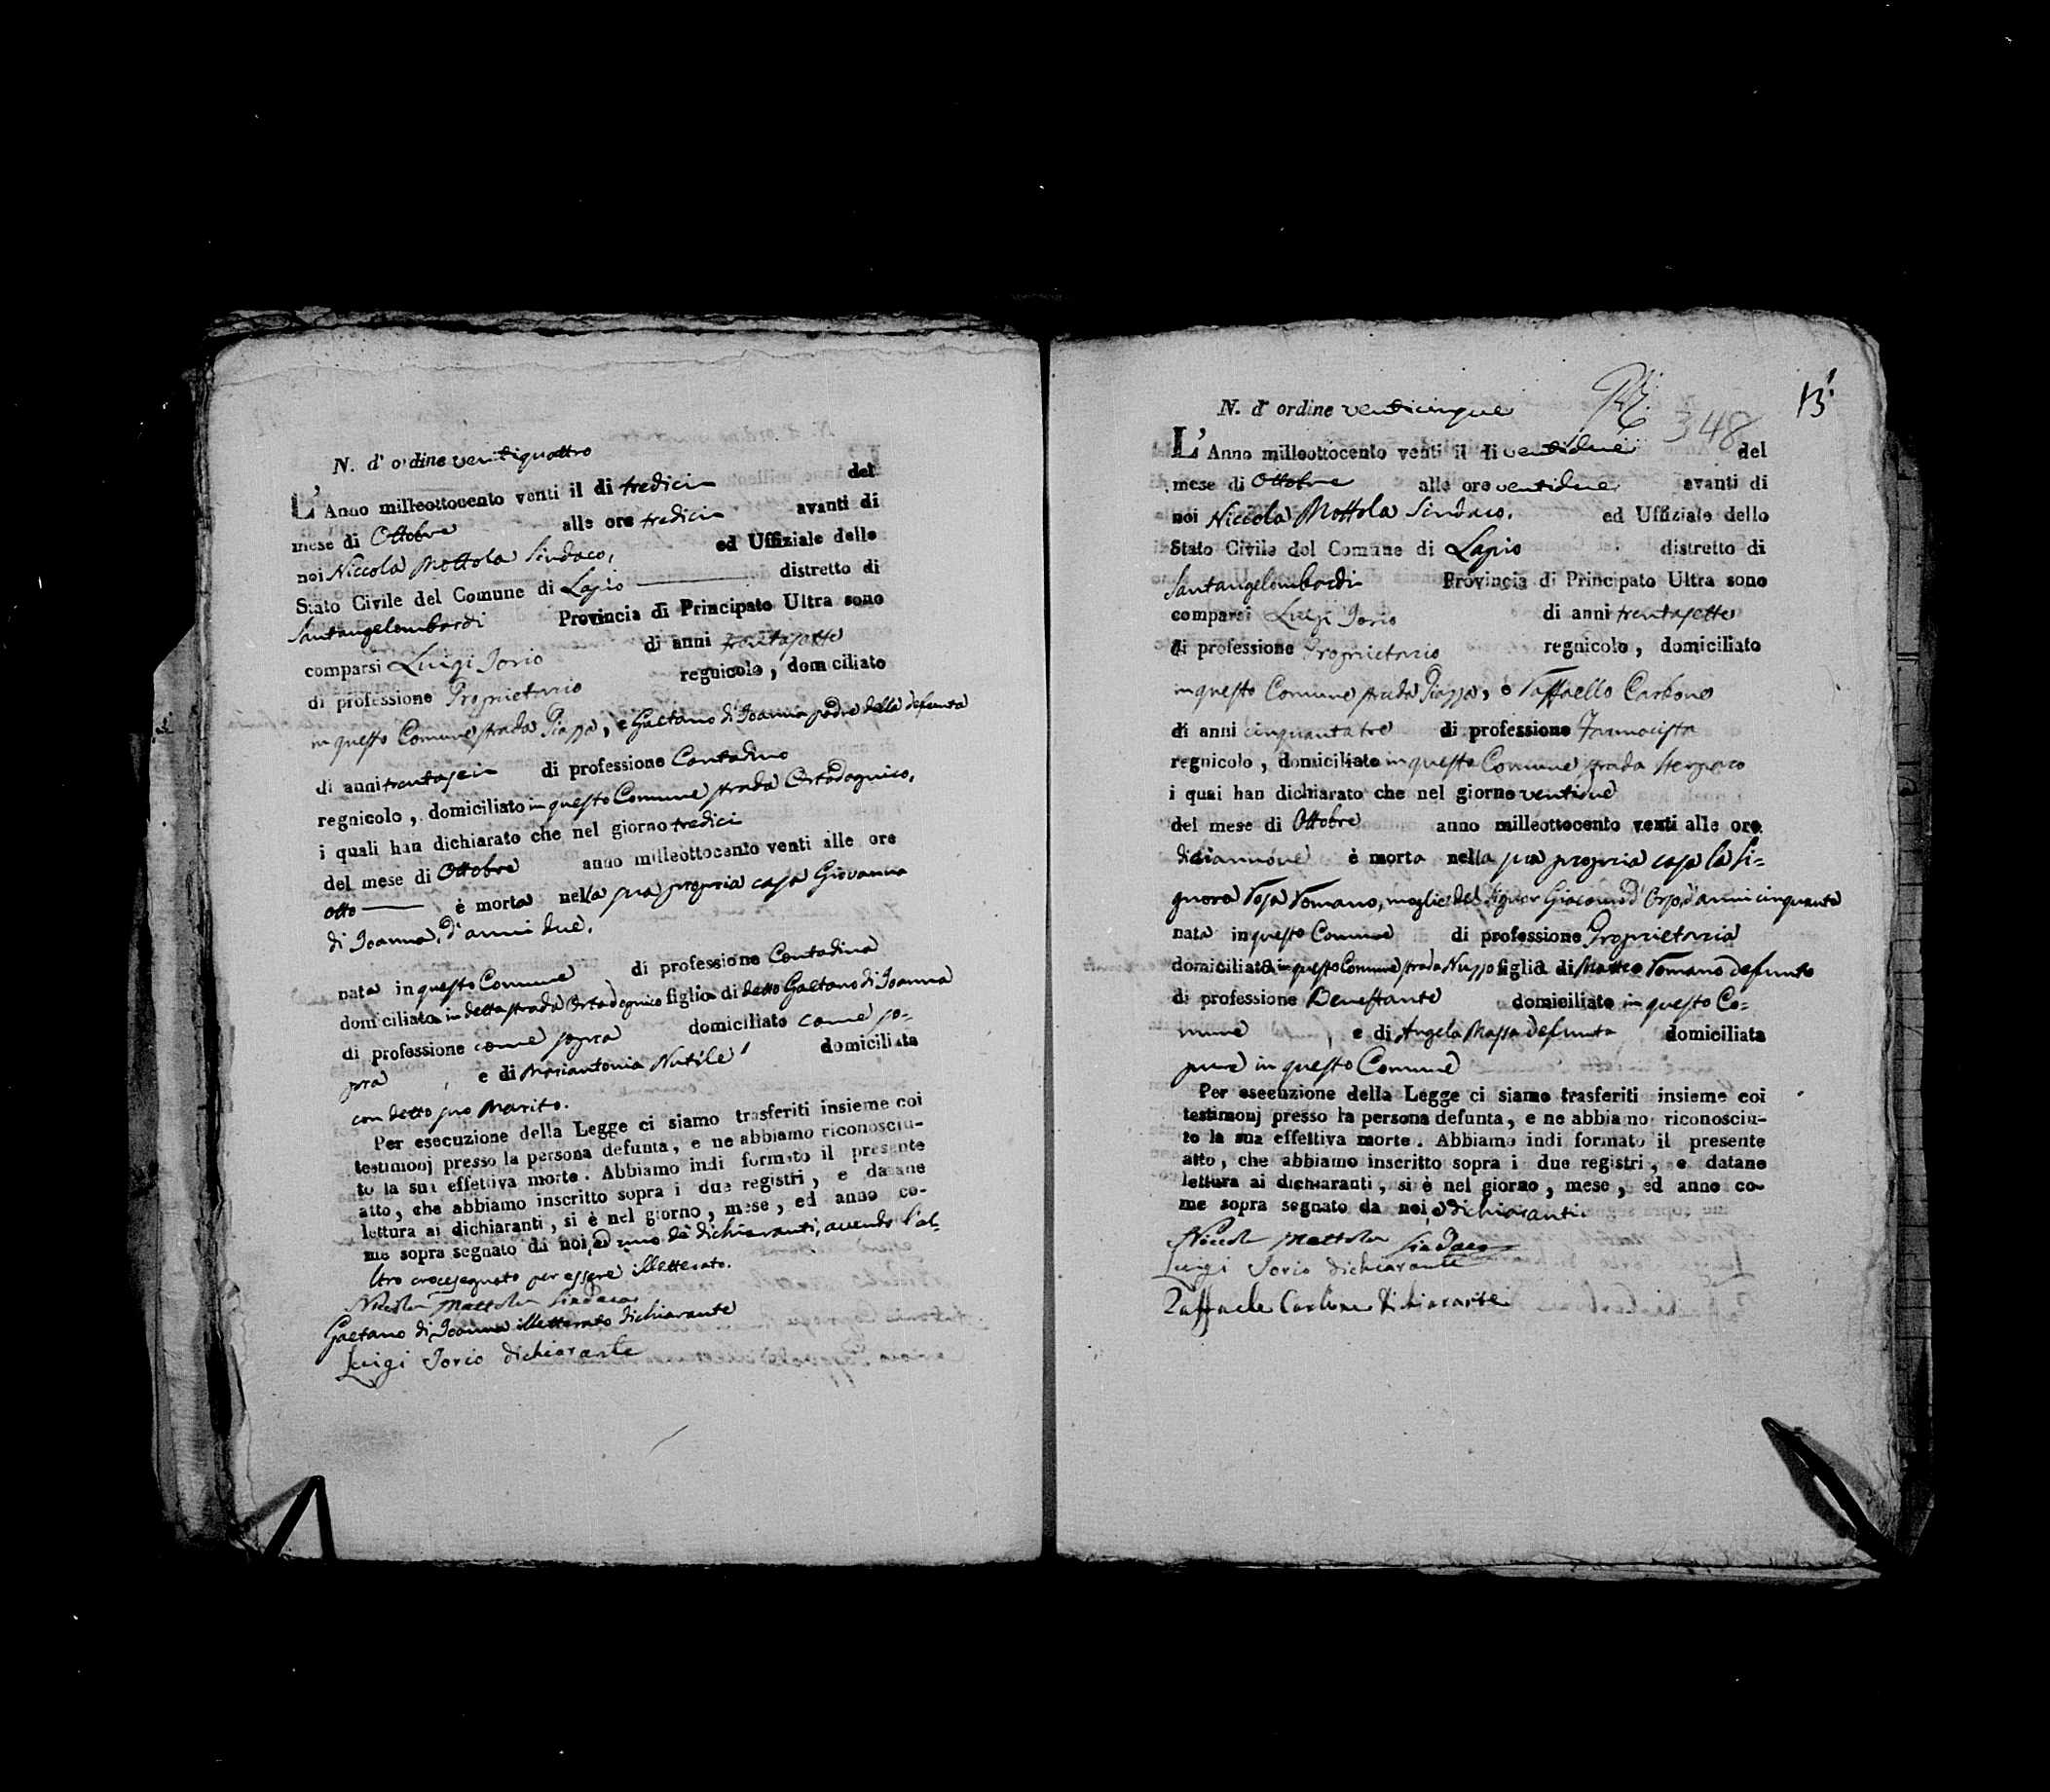 N. d' ordine ventiquattro
L'Anno milleottocento venti il di tredici del
mese di Ottobre alle ore tredici avanti di
noi Niccola Mottola Sindaco, ed Uffiziale dello
Stato Civile del Comune di Lapio distretto di
Santangelombardi Provincia di Principato Ultra sono
comparsi Luigi Jorio di anni trentasette
di professione Proprietario regnicolo, domiciliato
in questo Comune strada Piazza, e Gaetano di Joanna padre della defunta
di anni trentasei di professione Contadino
regnicolo, domiciliato in questo Comune strada Ortadognico,
i quali han dichiarato che nel giorno tredici
del mese di Ottobre anno milleottocento venti alle ore
otto è morta nella sua propria casa Giovanna
di Joanna, d'anni due.
nata in questo Comune di professione Contadina
domiciliata in detta strada Ortadognico figlia di detto Gaetano di Joanna
di professione come sopra domiciliato come so-
pra , e di Mariantonia Nutile domiciliata
con detto suo Marito.
Per esecuzione della Legge ci siamo trasferiti insieme coi
testimonj presso la persona defunta, e ne abbiamo riconosciu-
to la sua effettiva morte. Abbiamo indi formato il presente
atto, che abbiamo inscritto sopra i due registri, e datane
lettura ai dichiaranti, si è nel giorno, mese, ed anno co-
me sopra segnato da noi, ed uno de dichiaranti, avendo l'al-
ltro crocesegnato per essere illetterato.
Niccola Mottola Sindaco
Gaetano di Joanna illetterato dichiarante
Luigi Jorio dichiarante
13
348
N. d' ordine venticinque
L'Anno milleottocento venti il di ventidue del
mese di Ottobre alle ore ventidue avanti di
noi Niccola Mottola Sindaco, ed Uffiziale dello
Stato Civile del Comune di Lapio distretto di
Santangelombardi Provincia di Principato Ultra sono
comparsi Luigi Jorio di anni trentasette
di professione Proprietario regnicolo, domiciliato
in questo Comune strada Piazza, e Raffaello Carbone
di anni cinquantatre di professione Farmacista
regnicolo, domiciliato in questo Comune strada
i quai han dichiarato che nel giorno ventidue
del mese di Ottobre anno milleottocento venti alle ore
diciannove è morta nella sua propria casa la Si=
gnora Rosa Romano, moglie del Signor Giacomo d'Orso, d'anni cinquanta
nata in questo Comune di professione Proprietaria
domiciliata in questo Comune strada Nuzzo figlia di Matteo Romano defunto
di professione Benestante domiciliato in questo Co=
mune , e di Angela Massa defunta domiciliata
pure in questo Comune
Per esecuzione della Legge ci siamo trasferiti insieme coi
testimonj presso la persona defunta, e ne abbiamo riconosciu-
to la sua effettiva morte. Abbiamo indi formato il presente
atto, che abbiamo inscritto sopra i due registri, e datane
lettura ai dichiaranti, si è nel giorno, mese, ed anno co-
me sopra segnato da noi, e dichiaranti.
Niccola Mottola Sindaco
Luigi Jorio dichiarante
Raffaele Carbone dichiarante